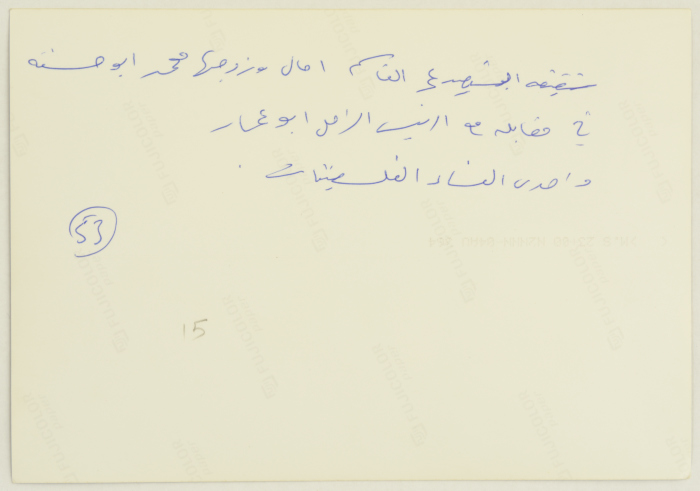 شقيقة الشهيد علي القاسم امال وزوجها محمد ابو حسنه
في مقابله مع الرئيس الراحل ابو عمار
واحدى النساء الفلسطينيات .
53
15
FUJICOLOR